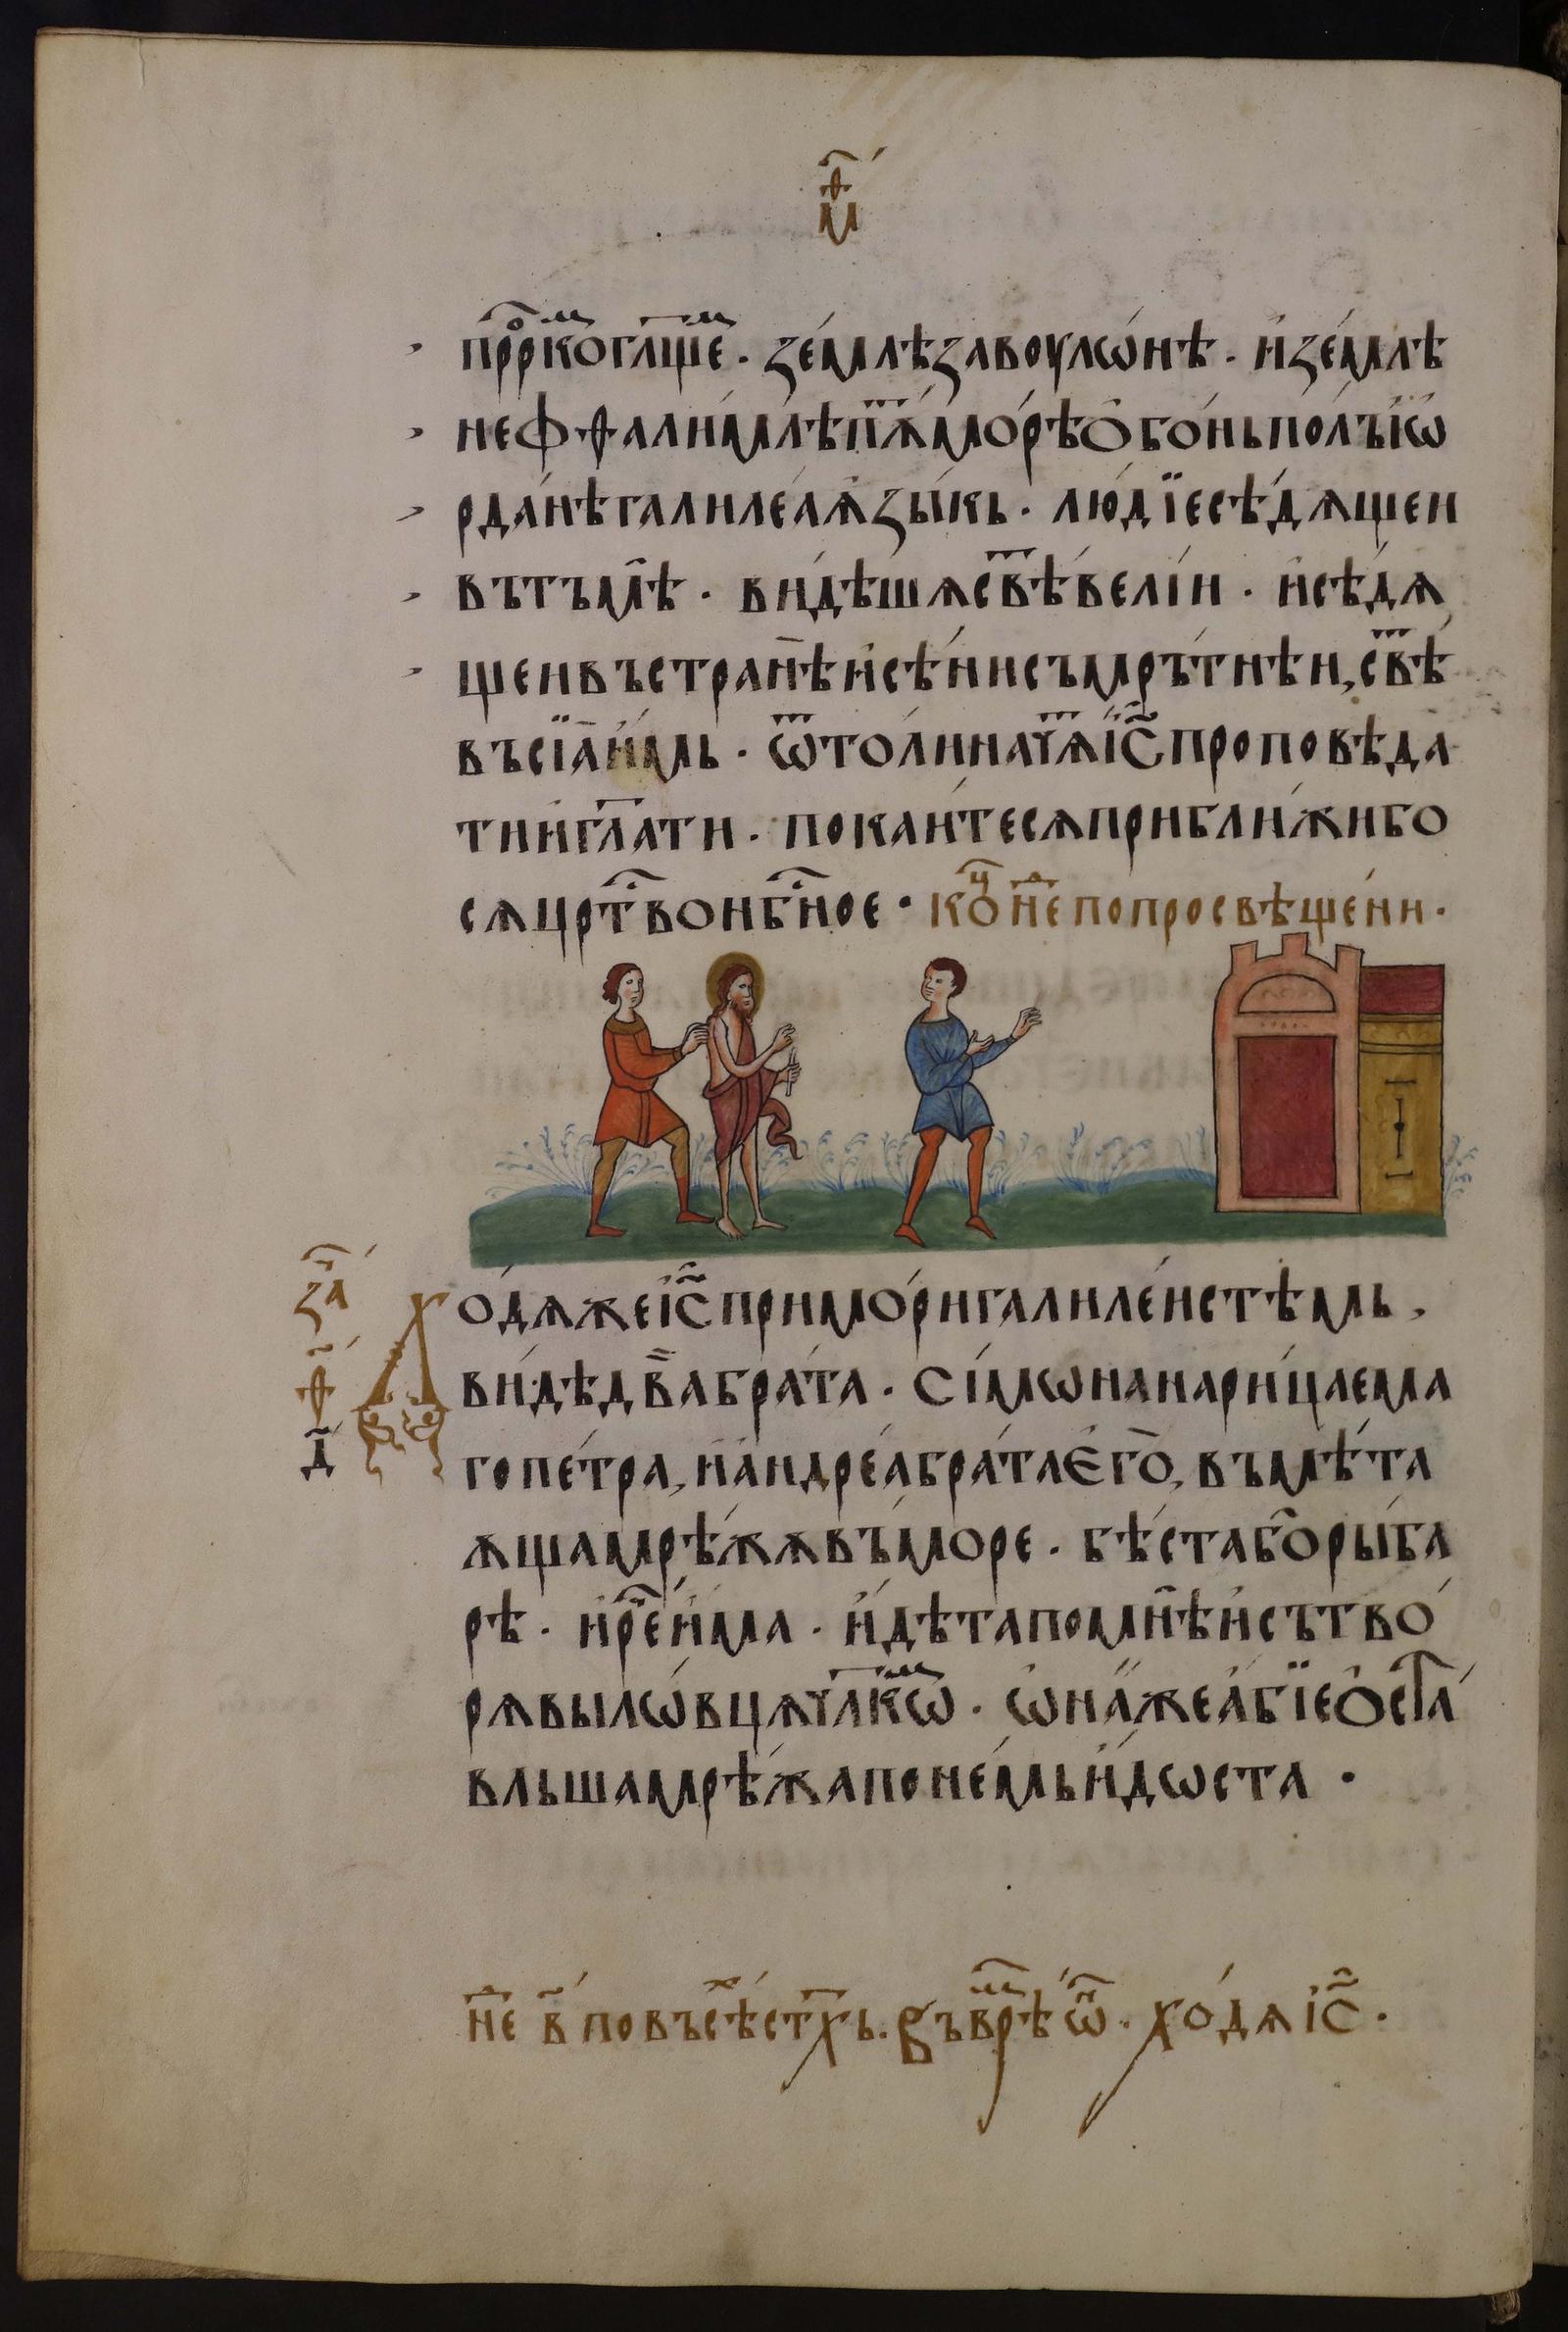 м҃ѳ
пррⷪ҇комь гл҃щемь · землѣ завоулѡ́нѣ · и҆ зе́млѣ
нефѳали́млѣ пѫ́ть мо́рѣ ѻ҆бо́нь по́лъ і҆ѡ
рда́нѣ галиле́а ѧ҆зы́кь · лю́дїе сѣдѧщеи
въ тъмѣ̀ · ви́дѣшѧ свѣ́ть ве́лїи · и҆ сѣдѧ
щеи въ странѣ̀ и҆ сѣ́ни съмрътнѣи, свѣ́ть
въсїа̀ и҆́мь · ѿто́ли начѧ́ть і҆с҃ проповѣда
ти и҆ гл҃ати · пока́итесѧ приближи́ бо
сѧ црⷭ҇тво нбⷭ҇ное · конⷰ҇ неⷣ по просвѣще́ни ·
за҃ч
ѳ҃
д҃
Хо́дѧ же і҆с҃ при мо́ри галиле́истѣмь ,
ви́дѣ два̀ бра́та · Сі́мѡна нарица́ема
го пе́тра, и҆ а҆ндре́а бра́та е҆го̀, въмѣ́та
ѫща мрѣ́жѫ въ мо́ре · бѣ́ста бо̀ ры́ба
рѣ · и҆ рⷱ҇е и҆́ма · и҆дѣта по мнѣ̀ и҆ сътво
рѫ вы ло́вцѧ чл҃кѡмь · ѡ҆на́ же а҆́бїе ѻ҆ста́
вльша мрѣ́жѧ по не́мь и҆дѡста ·
неⷣ в҃ по въсѣ́хь ст҃хь. Въ врѣ́мѧ ѡ҆́но · хо́дѧ і҆с҃ ·